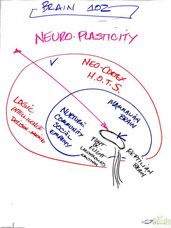 BRAIN 102
NEURO-PLASTICITY
NEO-CORTEX
H.O.T.S.
MAMMALIAN
BRAIN
LOGIC
INTELLIGENCE
DECISION-MAKING
NURTURE
COMMUNITY
SOCIAL
EMPATHY
FIGHT
OR
FLIGHT
REPTILIAN
BRAIN